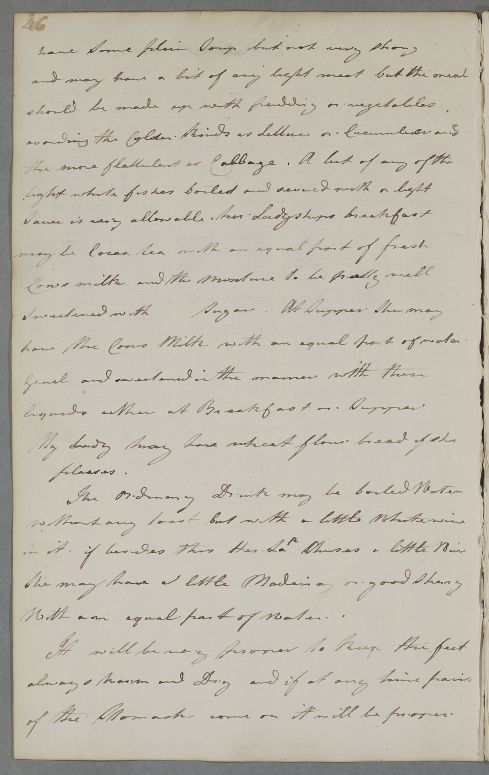 46
have Some plain Soup but not very strong
and may have a bit of any light meat but the meal
should be made up with pudding or vegetables
avoiding the Colder Kinds as Lettuce or Cucumber and
the more flatulent as Cabbage. A bit of any of the
light white fishes boiled and served with a light
Sauce is very allowable. Her Ladyships breakfast
may be Cocoa tea with an equal part of fresh
Cows milk and the Mixture to be pretty well
Sweetened with Sugar. At Supper She may
have the Cows Milk with an equal part of water
Gruel and sweetened in the manner with these
liquids either at Breakfast or Supper
My Lady may have wheat flour bread if she
pleases.
The Ordinary Drink may be boiled Water
without any toast but with a little White wine
in it. if besides this Her Lap Chuses a little Wine
She may have a little Madeira or good Sherry
With an equal part of Water.
It will be very proper to Keep the feet
always warm and Dry and if at any time pain
of the Stomach come on it will be proper